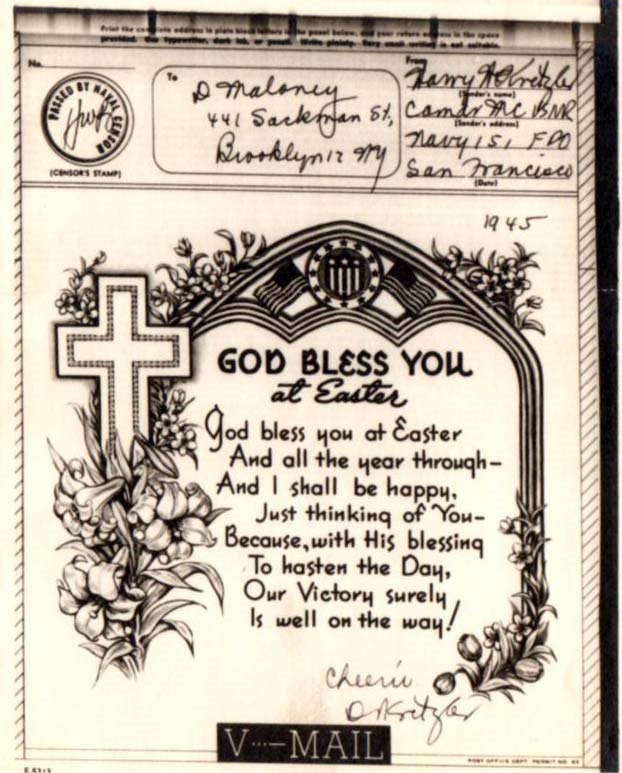 Print the complete address in plain block letters in the panel below, and your return address in the space
provided. Use typewriter, dark ink, or pencil. Write plainly. Very small writing is not suitable.
No.
PASSED BY NAVAL CENSOR
(CENSOR'S STAMP)
To
D Maloney
441 Sackman St,
Brooklyn 12 NY
From
Harry A Kretzler
(Sender's name)
Comdr MC USNR
(Sender's address)
Navy 151 FPO
San Francisco
(Date)
1945
GOD BLESS YOU
at Easter
God bless you at Easter
And all the year through-
And I shall be happy,
Just thinking of You-
Because, with His blessing
To hasten the Day,
Our Victory surely
Is well on the way!
Cheerio
Kretzler
V···-MAIL
POST OFFICE DEPT. PERMIT NO.